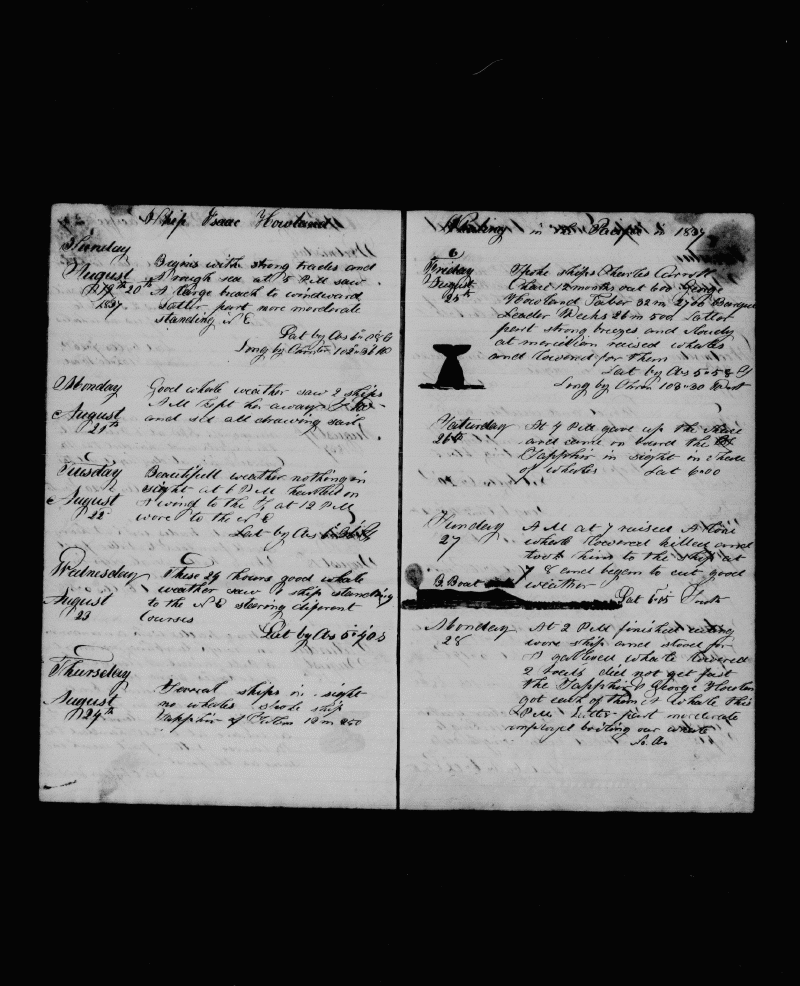 Ship Isaac Howland
Sunday
August
20th
1837
Begins with strong trades and
rough sea at 5 PM saw
A large breach to windward
Latter part more moderate
standing N E
Lat by Obs
Long by Chron
Monday
August
21th
Good whale weather saw 2 ships
and set all drawing sail
Tuesday
August
22
Beautifull weather nothing in
sight at 6 PM hauled on
wind to the at 12 PM
wore to the N E
Lat by Obs
Wednesday
August
23
These 24 hours good whale
weather saw 1 ship standing
to the N E stearing diferent
Courses
Lat by Obs
Thursday
August
24th
Several ships in sight
no whales spoke ship
Sapphire of Salem 12 m 250
Whaling in the Pacific in 1837
Friday
August
25th
Spoke ships Charles Carroll
Chace 12 months out 600 George
Howland Taber 32 m 2700 Barque
Leader Weeks 26 m 500 Latter
part strong breezes and cloudy
at meridian raised whales
and lowered for them
Lat by Obs
Long by Chron
Saturday
26th
At 7 PM gave up the chace
and came on board the
Sapphire in sight in chace
of whales Lat 6=00
Sunday
27
A M at 7 raised A lone
whale lowered killed and
took him to the ship at
8 and begun to cut good
weather
B Boat
Lat South
Monday
28
At 2 PM finished cuting
wore ship and stood for
A gallened whale lowered
2 boats did not get fast
the Sapphire & George Howland
got each of them 1 whale this
PM Latter part moderate
employed boiling our whale